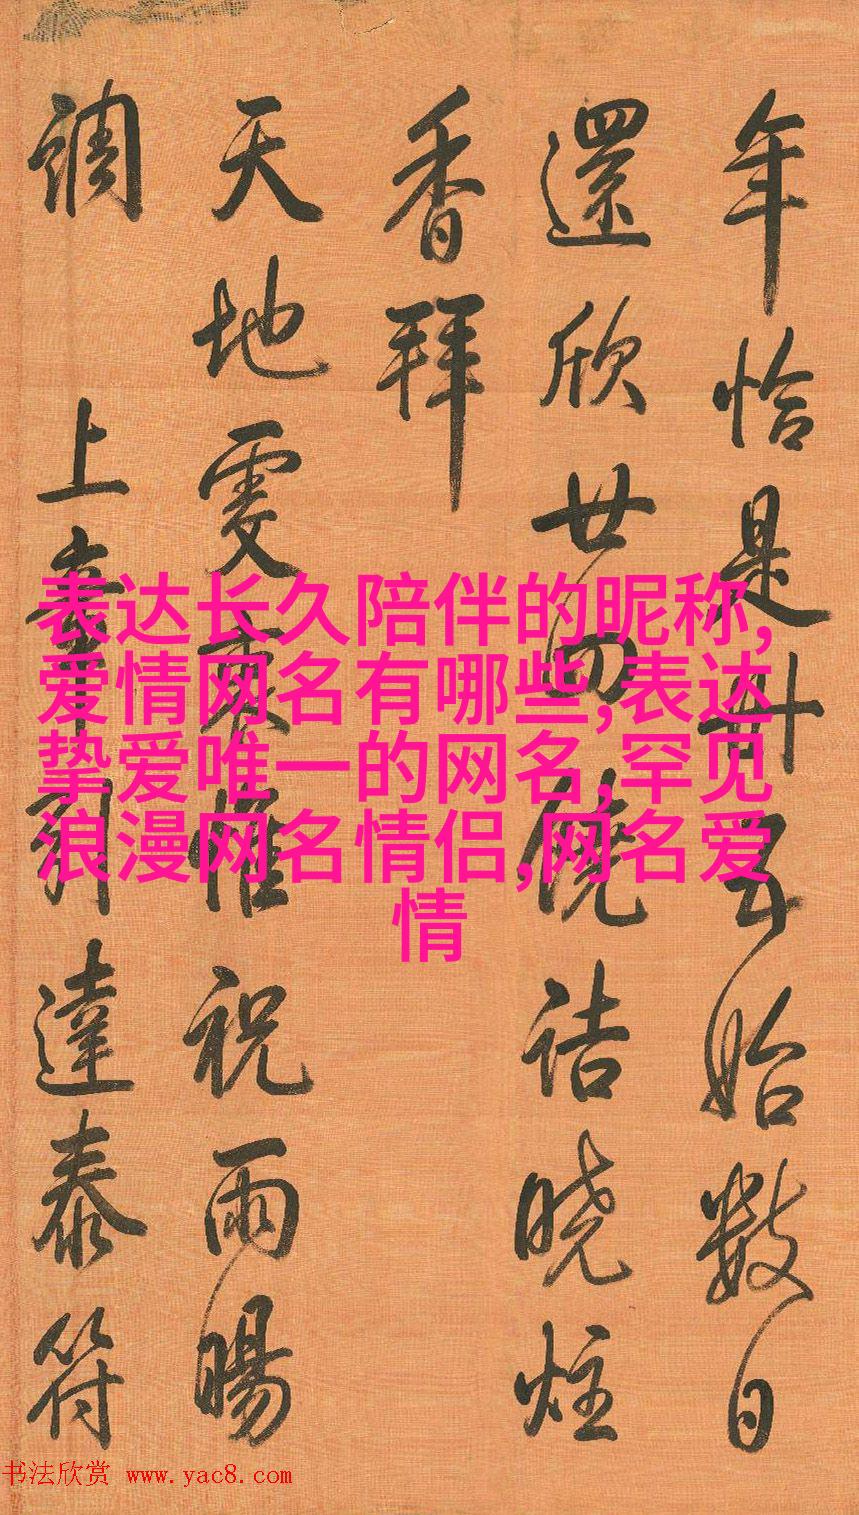 年恰是卅五始數日
還欣廿四饒詰曉炷
香拜
天地虔衷惟祝雨暘
調 上引達泰符
表达长久陪伴的昵称,
爱情网名有哪些,表达
挚爱唯一的网名,罕见
浪漫网名情侣,网名爱
情
书法欣赏 www.yac8.com